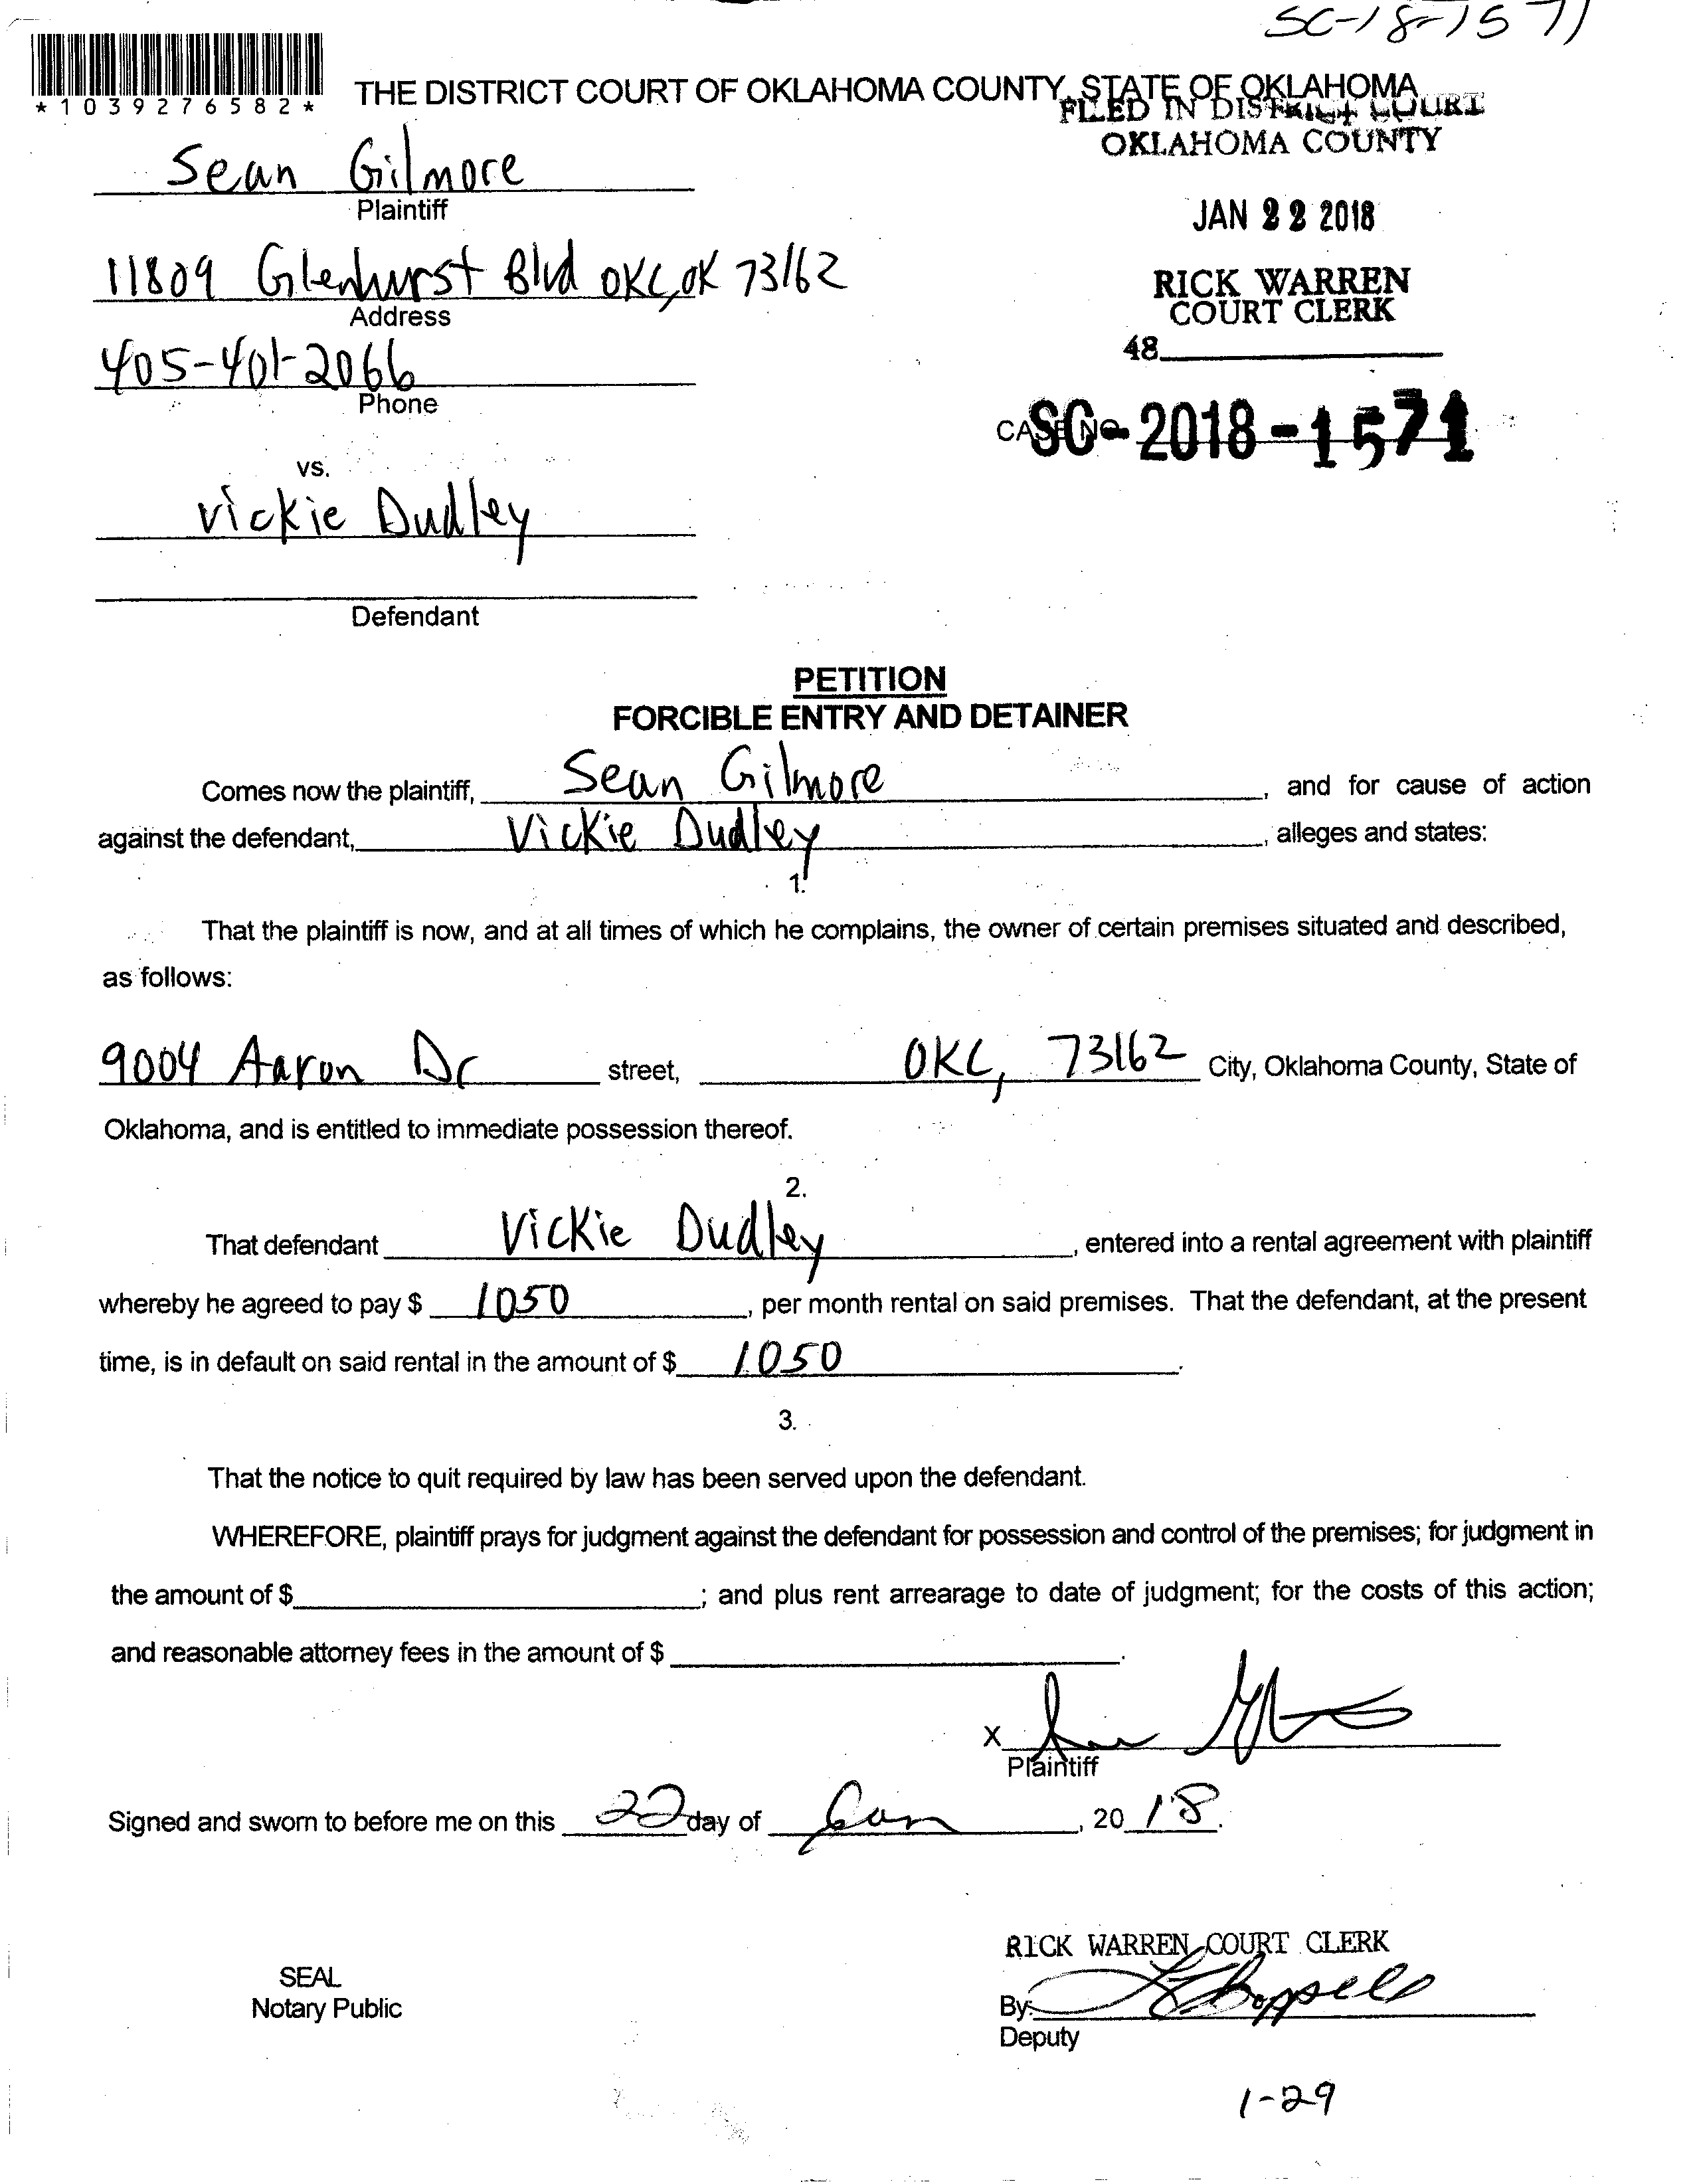 SC-18-1571
*1039276582*
THE DISTRICT COURT OF OKLAHOMA COUNTY, STATE OF OKLAHOMA
FILED IN DISTRICT COURT
OKLAHOMA COUNTY
Sean Gilmore
Plaintiff
JAN 22 2018
11809 Glenhurst Blvd OKC, OK 73162
Address
RICK WARREN
COURT CLERK
405-401-2066
Phone
48
CASE NO. SC-2018-1571
vs.
Vickie Dudley
Defendant
PETITION
FORCIBLE ENTRY AND DETAINER
Comes now the plaintiff, Sean Gilmore, and for cause of action
against the defendant, Vickie Dudley, alleges and states:
1.
That the plaintiff is now, and at all times of which he complains, the owner of certain premises situated and described,
as follows:
9004 Aaron Dr street, OKC, 73162 City, Oklahoma County, State of
Oklahoma, and is entitled to immediate possession thereof.
2.
That defendant Vickie Dudley, entered into a rental agreement with plaintiff
whereby he agreed to pay $ 1050, per month rental on said premises. That the defendant, at the present
time, is in default on said rental in the amount of $ 1050.
3.
That the notice to quit required by law has been served upon the defendant.
WHEREFORE, plaintiff prays for judgment against the defendant for possession and control of the premises; for judgment in
the amount of $; and plus rent arrearage to date of judgment; for the costs of this action;
and reasonable attorney fees in the amount of $.
X
Plaintiff
Signed and sworn to before me on this 22 day of Jan, 2018.
RICK WARREN COURT CLERK
SEAL
Notary Public
By:
Deputy
1-29